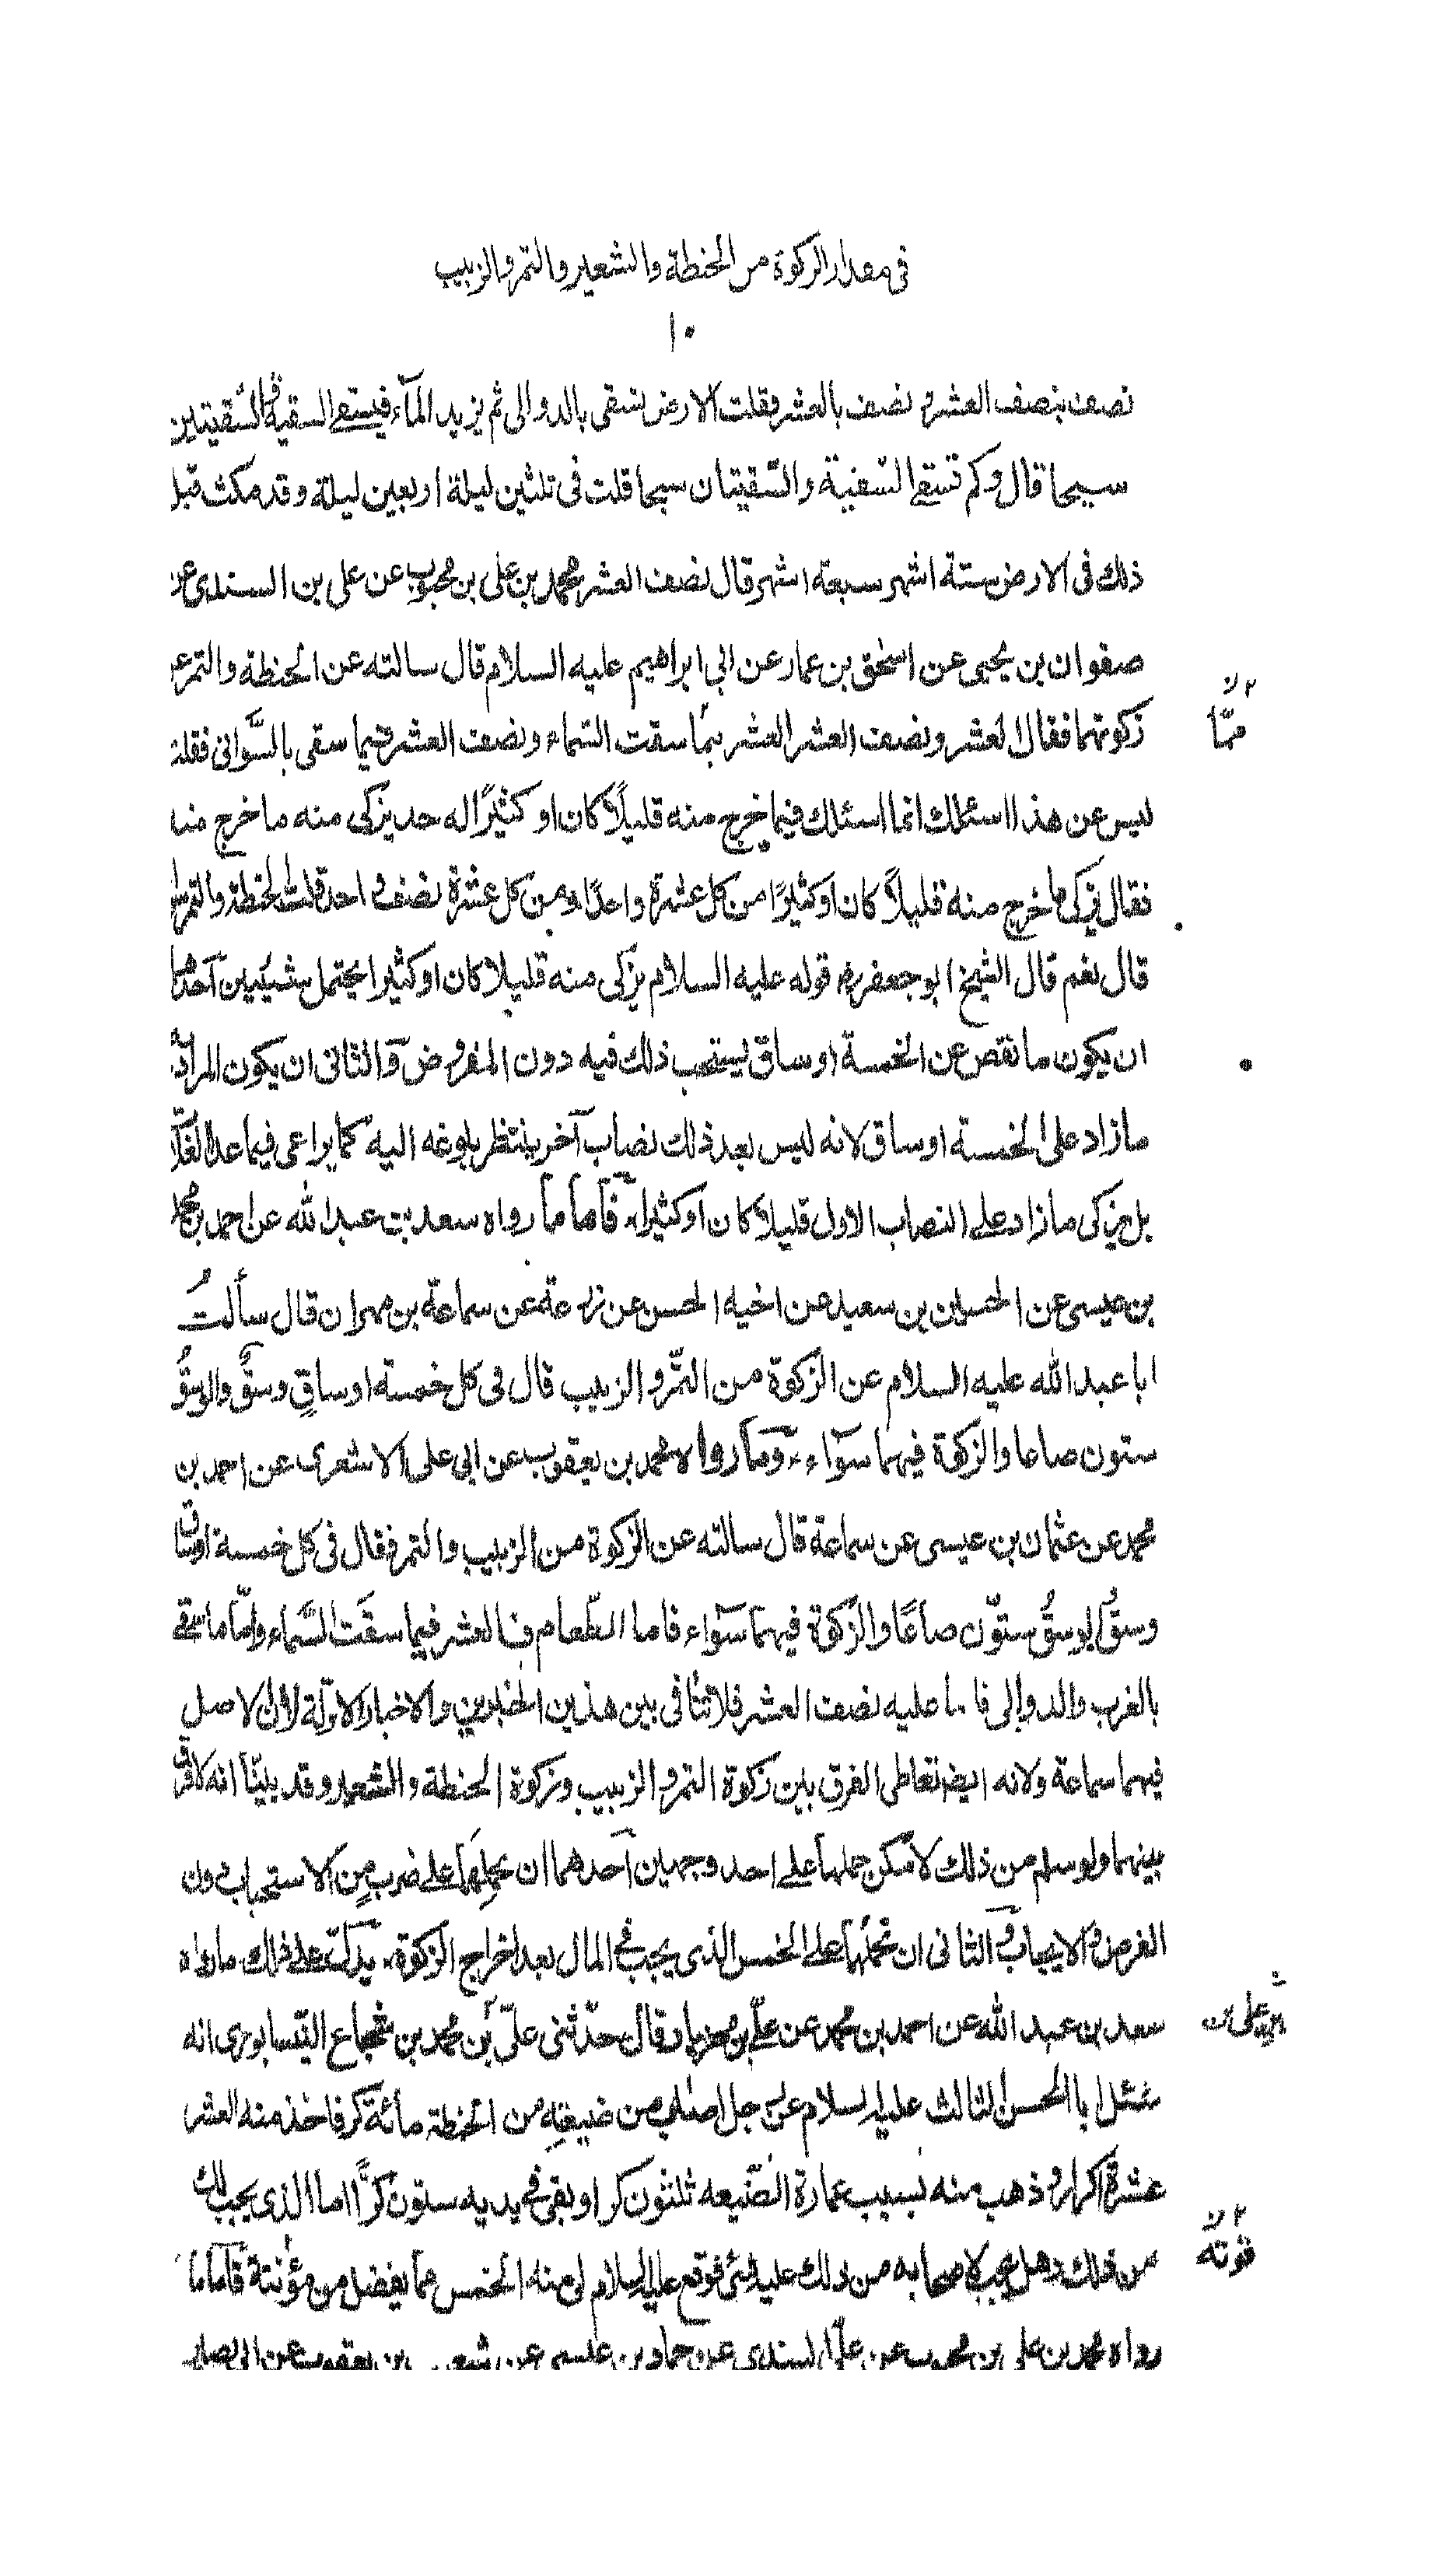 فى مقدار الزكوة من الحنطة والشعير والتمر والزبيب
١٠
نصف بنصف العشر و نصف بالعشر فقلت الارض تسقى بالدوالى ثم يزيد المآء فيسقى السقية والسّقيتين
سيحا قال وكم تسقى السّقية والسّقيتان سيحا قلت فى ثلثين ليلة اربعين ليلة وقد مكث قبل
ذلك فى الارض ستة اشهر سبعة اشهر قال نصف العشر محمد بن على بن محبوب عن على بن السندى عن
صفوان بن يحيى عن اسحٰق بن عمار عن ابى ابراهيم عليه السلام قال سالته عن الحنطة والتمر عن
زكوتهما فقال العشر ونصف العشر العشر بمّا سقت السّماء ونصف العشر فيما سقى بالسَّوانى فقلت
ليس عن هذا اسئلك انما اسئلك فيما خرج منه قليلًا كان او كثيرًا اله حد يزكى منه ما خرج منه
فقال يزكى ما خرج منه قليلاً كان او كثيرًا من كل عشرة واحدًا ومن كل عشرة نصف واحد قلت الحنطة والتمر سواء
قال نعم قال الشيخ ابو جعفر ره قوله عليه السلام يزكى منه قليلا كان او كثيرا يحتمل شيئين آحدهما
ان يكون ما نقص عن الخمسة اوساق يستحب ذلك فيه دون المفروض وَالثانى ان يكون المراد به
مازاد على الخمسة اوساق لانه ليس بعد ذلك نصاب آخر ينتظر بلوغه اليه كما يراعى فيما عدا الغلات
بل يزكى مازاد على النصاب الاول قليلا كان او كثيرا، فَآما مآ رواه سعد بن عبد الله عن احمد بن محمد
بن عيسى عن الحسين بن سعيد عن اخيه الحسن عن زرعة عن سماعة بن مهران قال سألتُ
ابا عبد الله عليه السلام عن الزّكوة من التّمر و الزبيب قال فى كل خمسة اوساقٍ وسقٌ والوسقُ
ستون صاعا والزكوة فيهما سوآء، وَمآ رواه محمد بن يعقوب عن ابى على الاشعرى عن احمد بن
محمد عن عثمان بن عيسى عن سماعة قال سالته عن الزّكوة من الزبيب والتمر فقال فى كل خمسة اوساق
وسقٌ والوسقُ ستوّن صاعًا والزّكوة فيهما سوآء فاما الطّعام فالعشر فيما سقَت السَّماء وامّا ما سقى
بالغرب والدوالى فانما عليه نصف العشر فلا تنافى بين هذين الخبرين والاخبار الاوّلة لان الاصل
فيهما سماعة ولانه ايضا تعاطى الفرق بين زكوة التمر و الزبيب وزكوة الحنطة والشعير وقد بيّنّا انه لا فرق
بينهما ولو سلم من ذلك لامكن حملها على احد وجهين آحدهما ان نحملها على ضرب من الاستحباب دون
الفرض والايجاب وَالثانى ان نحملها على الخمس الذى يجب فى المال بعد اخراج الزكوة، يدلّ على ذلك ما رواه
سعد بن عبد الله عن احمد بن محمد عن علىّ بن مهزيار قال حدّثنى علىّ بن محمد بن شجاع النّيسابورى انه
سئل ابا الحسن الثالث عليه السلام عن رجل اصاب من ضيعته من الحنطة مائة كر فاخذ منه العشر
عشرة اكرار و ذهب منه بسبب عمارة الضّيعه ثلثون كرا و بقى فى يديه ستون كرًّا اما الذى يجب لك
من ذلك وهل يجب لاصحابه من ذلك عليه شئ فوقع عليه السلام لى منه الخمس مما يفضل من مؤنته فَآما مآ
رواه محمد بن على بن محبوب عن علىّ السندى عن حماد بن عيسى عن شعيب بن يعقوب عن ابى بصير
٢ لا
ممّا
٢ لا
قوته